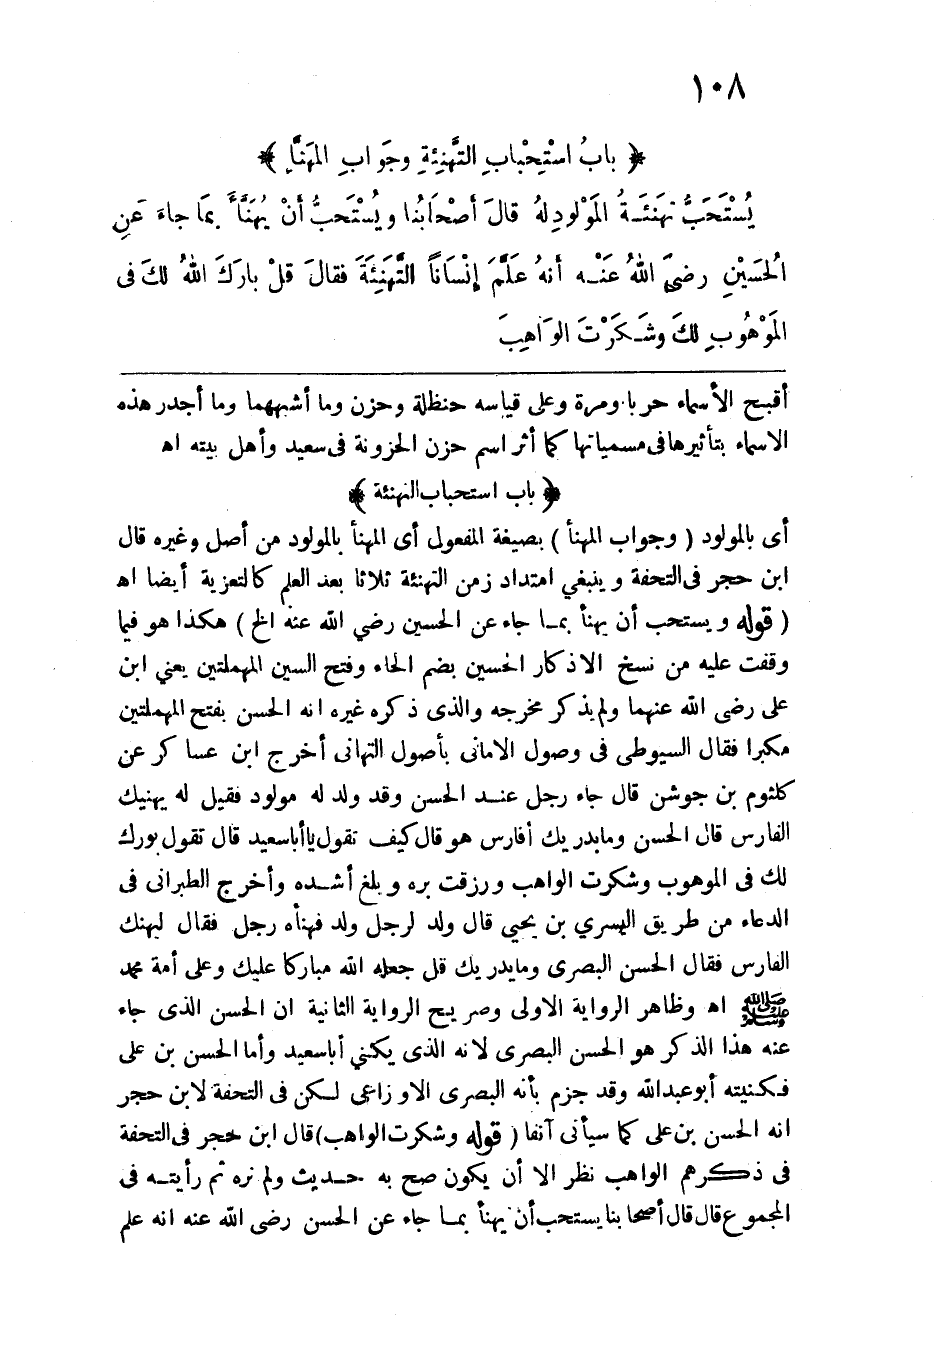 ١٠٨
﴿ بابُ اسْتِحْبابِ التَّهْنِئَةِ وجَوَابِ المُهَنَّإِ ﴾
يُسْتَحَبُّ تَهنئَةُ المَوْلودِ لهُ قالَ أصْحَابُنا ويُسْتَحبُّ أنْ يُهَنَّأَ بمَا جاءَ عَنِ
الحُسَيْنِ رضىَ اللهُ عَنْه أنهُ عَلَّمَ إنْسَاناً التَّهْنِئَةَ فقالَ قلْ بارَكَ اللهُ لكَ فى
المَوْهُوبِ لكَ وشَكَرْتَ الوَاهِبَ
أقبح الأسماء حربا ومرة وعلى قياسه حنظلة وحزن وما أشبههما وما أجدر هذه
الاسماء بتأثيرها فى مسمياتها كما أثر اسم حزن الحزونة فى سعيد وأهل بيته اه
﴿ باب استحباب التهنئة ﴾
أى بالمولود ( وجواب المهنأ ) بصيغة المفعول أى المهنأ بالمولود من أصل وغيره قال
ابن حجر فى التحفة وينبغي امتداد زمن التهنئة ثلاثا بعد العلم كالتعزية أيضا اه
( قوله ويستحب أن يهنأ بمـا جاء عن الحسين رضي الله عنه الخ ) هكذا هو فيما
وقفت عليه من نسخ الاذكار الحسين بضم الحاء وفتح السين المهملتين يعني ابن
على رضى الله عنهما ولم يذكر مخرجه والذى ذكره غيره انه الحسن بفتح المهملتين
مكبرا فقال السيوطى فى وصول الامانى بأصول التهانى أخرج ابن عساكر عن
كلثوم بن جوشن قال جاء رجل عنـد الحسن وقد ولد له مولود فقيل له يهنيك
الفارس قال الحسن ومايدريك أفارس هو قال كيف تقول ياأباسعيد قال تقول بورك
لك فى الموهوب وشكرت الواهب ورزقت بره وبلغ أشـده وأخرج الطبرانى فى
الدعاء من طريق السري بن يحيي قال ولد لرجل ولد فهنأه رجل فقال ليهنك
الفارس فقال الحسن البصرى ومايدريك قل جعله الله مباركا عليك وعلى أمة محمد
ﷺ اه وظاهر الرواية الاولى وصريح الرواية الثانية ان الحسن الذى جاء
عنه هذا الذكر هو الحسن البصرى لانه الذى يكني أباسعيد وأما الحسن بن على
فـكنيته أبوعبدالله وقد جزم بأنه البصرى الاوزاعى لـكن فى التحفة لابن حجر
انه الحسن بن على كما سيأتى آنفا ( قوله وشكرت الواهب ) قال ابن حجر فى التحفة
فى ذكـرهم الواهب نظر الا أن يكون صح به حـديث ولم نره ثم رأيتـه فى
المجموع قال قال أصحابنا يستحب أن يهنأ بمـا جاء عن الحسن رضى الله عنه انه علم